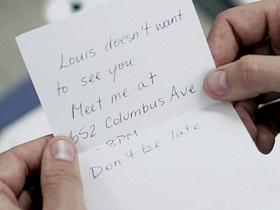 Louis doesn't want
to see you.
Meet me at
652 Columbus Ave
-8PM
Don't be late